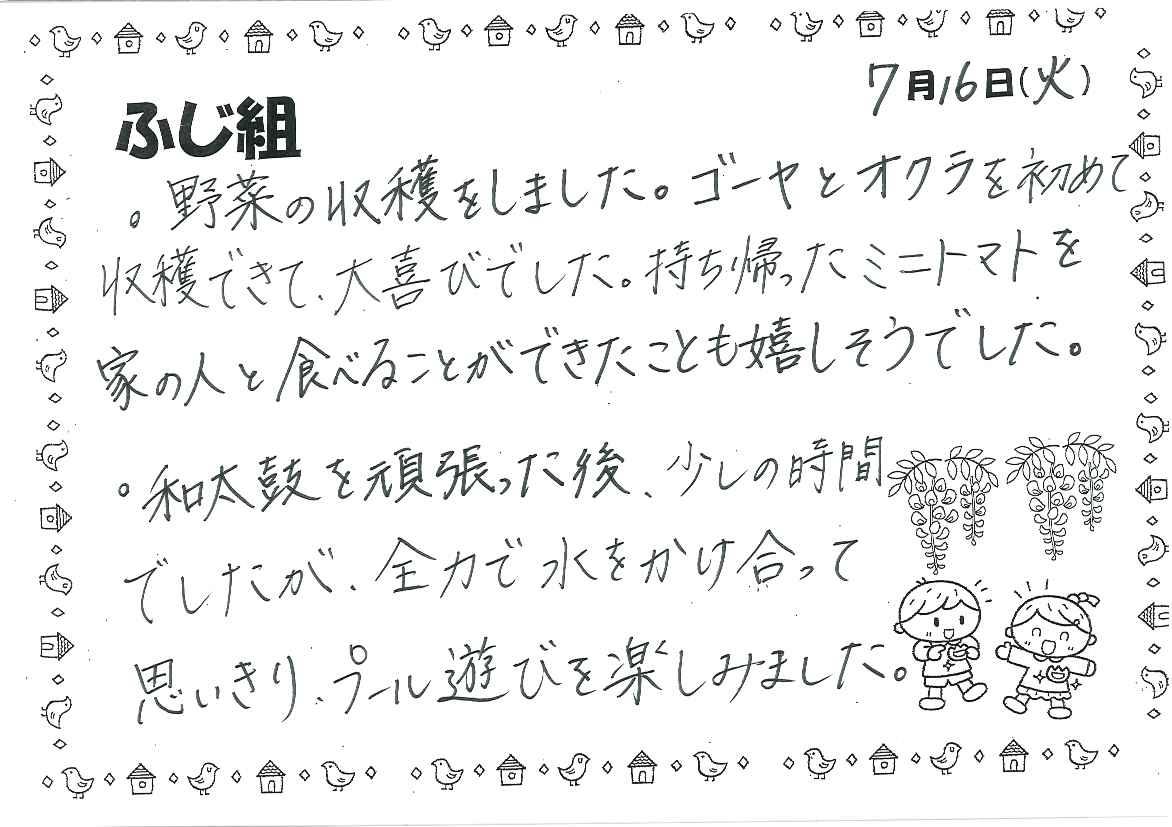 7月16日(火)
ふじ組
。野菜の収穫をしました。ゴーヤとオクラを初めて
収穫できて、大喜びでした。持ち帰ったミニトマトを
家の人と食べることができたことも嬉しそうでした。
。和太鼓を頑張った後、少しの時間
でしたが、全力で水をかけ合って
思いきり、プール遊びを楽しみました。